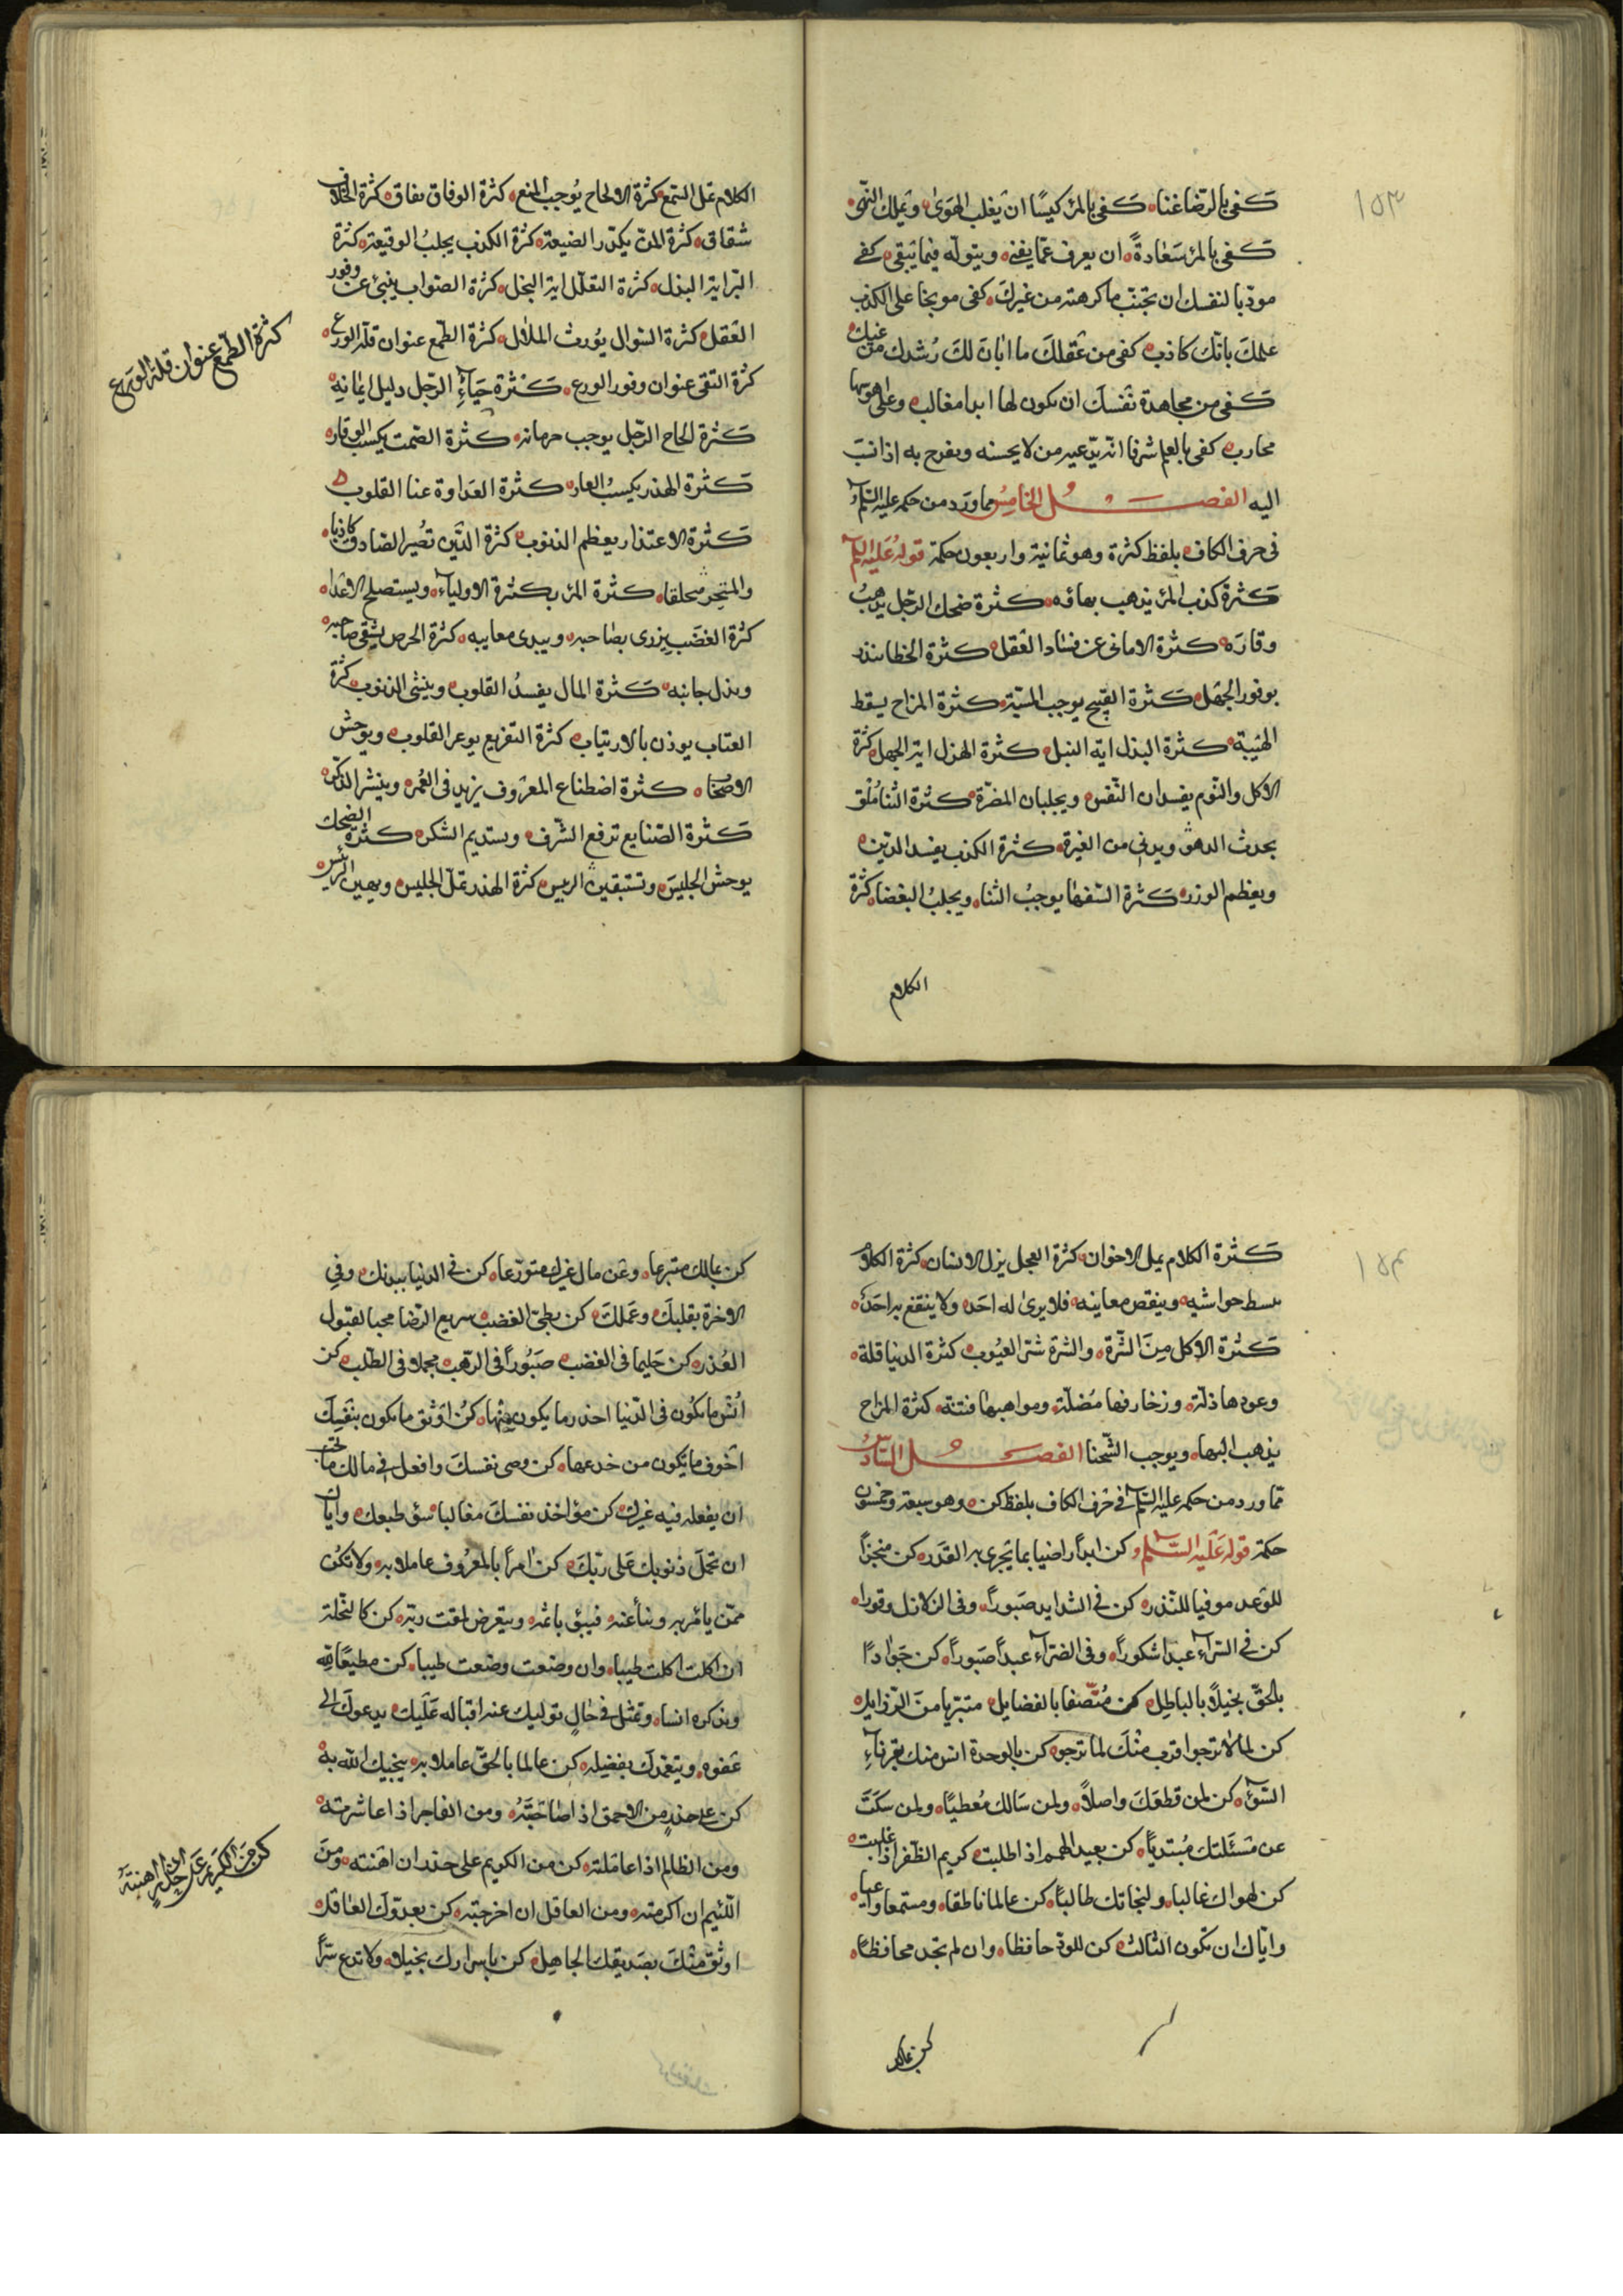 ١٥٣
كفى بالرضا غنا كفى بالمرء كيسًا ان يغلب الهوى ويملك النهى
كفى بالمرء سعادةً ان يعرف عمّا يفنى ويتوله فيما يبقى كفى
مودبا لنفسك ان تجنب ما كرهته من غيرك كفى موبخا على الكذب
علمك بانك كاذب كفى من عقلك ما ابان لك رشدك من غيك
كفى من مجاهدة نفسك ان تكون لها ابدا مغالب وعلى اهويتها
محارب كفى بالعلم شرفا انه يدّعيه من لا يحسنه ويفرح به اذا نسب
اليه الفصل الخامس مما ورد من حكم عليه السلام
فى حرف الكاف بلفظ كثرة وهو ثمانية واربعون حكمة قوله عليه السلام
كثرة كذب المرء يذهب بهاؤه كثرة ضحك الرجل يذهب
وقاره كثرة الامانى عن فساد العقل كثرة الخطا ينذر
بوفور الجهل كثرة القبيح يوجب المسبّة كثرة المزاح يسقط
الهيبة كثرة البذل اية النبل كثرة الهزل اية الجهل كثرة
الاكل والنوم يفسدان النفس ويجلبان المضرة كثرة الثنا ملق
يحدث الدهو ويدنى من الغيرة كثرة الكذب يفسد الدين
ويعظم الوزر كثرة السفها يوجب الثنا ويجلب البغضا كثرة
الكلام
الكلام تمل السمع كثرة الالحاح يُوجب المنع كثرة الوفاق نفاق كثرة الخلاف
شقاق كثرة المنّ يكدر الضيعة كثرة الكذب يجلب الوقيعة كثرة
البّر اية البذل كثرة التعلل اية البخل كثرة الصواب ينبئ عن وفور
العقل كثرة السوال يورث الملال كثرة الطمع عنوان قلة الورع
كثرة التقى عنوان وفور الورع كثرة حياء الرجل دليل ايمانه
كثرة الحاح الرجل يوجب حرمانه كثرة الصمت يكسب الوقار
كثرة الهذر يكسب العار كثرة العداوة عنا القلوب
كثرة الاعتذار يعظم الذنوب كثرة الدّين تصُير الصادق كاذبا
والمنجز مخلفا كثرة المرء بكثرة الاولياء ويستصلح الاعدا
كثرة الغضب يزرى بصاحبه ويبدى معايبه كثرة الحرص يشقى صاحبه
ويذل جانبه كثرة المال يفسدُ القلوب وينشى الذنوب كثرة
العتاب يوذن بالارتياب كثرة التقريع يوعر القلوب ويوحش
الاصحاب كثرة اصطناع المعروف يزيد فى العُمر وينشر الذكر
كثرة الصنايع ترفع الشرف وبستديم الشكر كثرة الضحك
يوحش الجليس وتستبقين الريس كثرة الهذر تملّ الجليس ويهين الرئيس
كثرة الطمع عنوان قلة الورع
١٥٤
كثرة الكلام يمل الاخوان كثرة العجل يزل الانسان كثرة الكلام
يبسط حواشيه وينقص معاينه فلا يرى له احد ولا ينتفع به احد
كثرة الاكل مِنَ الشَّرة والشرة شر العيُوب كثرة الدنيا قلة
وعودها ذلة وزخارفها مُضلّة ومواهبها فتنة كثرة المزاح
يذهب البها ويوجب الشحنا الفصل السّادس
ممّا ورد من حكم عليه السلام فى حرف الكاف بلفظ كن وهو سبعة وخمسون
حكمة قوله عليه السلام وكن ابداً راضيا بما يجرى به القدر كن منجزاً
للوعد موفيا للنذر كن فى الشدايد صَبوراً وفى الزلازل وقورا
كن فى السراء عبدا شكوراً وفى الضراء عبداً صبوراً كن جَوادًا
بالحق بخيلاً بالباطل كن مُتّصفا بالفضايل متبرّيا من الرّزايل
كن لما لا ترجوا قرب منك لما ترجو كن بالوحدة انس منك بقرناء
السّوء كن لمن قطعك واصلاً ولمن سَالك مُعطيًا ولمن سكت
عن مسئلتك مُبتدياً كن بعيد الهمم اذا طلبت كريم الظفر اذا غلبت
كن لهواك غالبا ولنجاتك طالباً كن عالما ناطقا ومستمعا واعيا
واياك ان تكون الثالث كن للودّ حافظا وان لم تجد محافظًا
كن بمالك
كن بمالك متبرعا وعن مال غيرك متورّعا كن فى الدنيا ببدنك وفى
الاخرة بقلبك وعَملك كن بطئ الغضب سريع الرضا محبا لقبول
العُذر كن حَليما فى الغضب صَبُوراً فى الرهب مجملا فى الطّلب كن
انس ما تكُون فى الدّنيا احذر ما يكون منها كن اوثق ما تكون بنفسِكَ
اخوف ما تكون من خدعها كن وصى نفسك وافعل فى مالك ما تحب
ان يفعله فيه غيرك كن مؤاخذ نفسك مغالبا سوء طبعك واياك
ان تحمل ذنوبك عَلى ربّكَ كن امراً بالمعرُوف عاملا به ولا تكن
ممّن يامر به وينأ عنه فيبؤ باثمه ويتعرض لمقت ربّه كن كالنحلة
ان اكلت اكلت طيبا وان وضعت وضعت طيبا كن مطيعًا لله
وبذكره انسا وتمثل فى حالِ توليك عنه اقباله عَلَيك يدعوك الى
عفوه ويتغمّدك بفضيله كن عالما بالحقّ عاملا به ينجيك الله به
كن على حذرٍ من الاحمق اذا صَاحَبتَه ومن الفاجر اذا عاشرته
ومن الظالم اذا عاملته كن من الكريم على حذر ان اهنته ومنَ
اللّئيم ان اكرمته ومن العاقل ان احرجته كن بعدوّك العاقل
اوثق منْكَ بصَديقك الجاهل كن باسرارك بخيلا ولا تدع سّراً
كن مَن الكريم عَلى حذرٍ ان اهنته